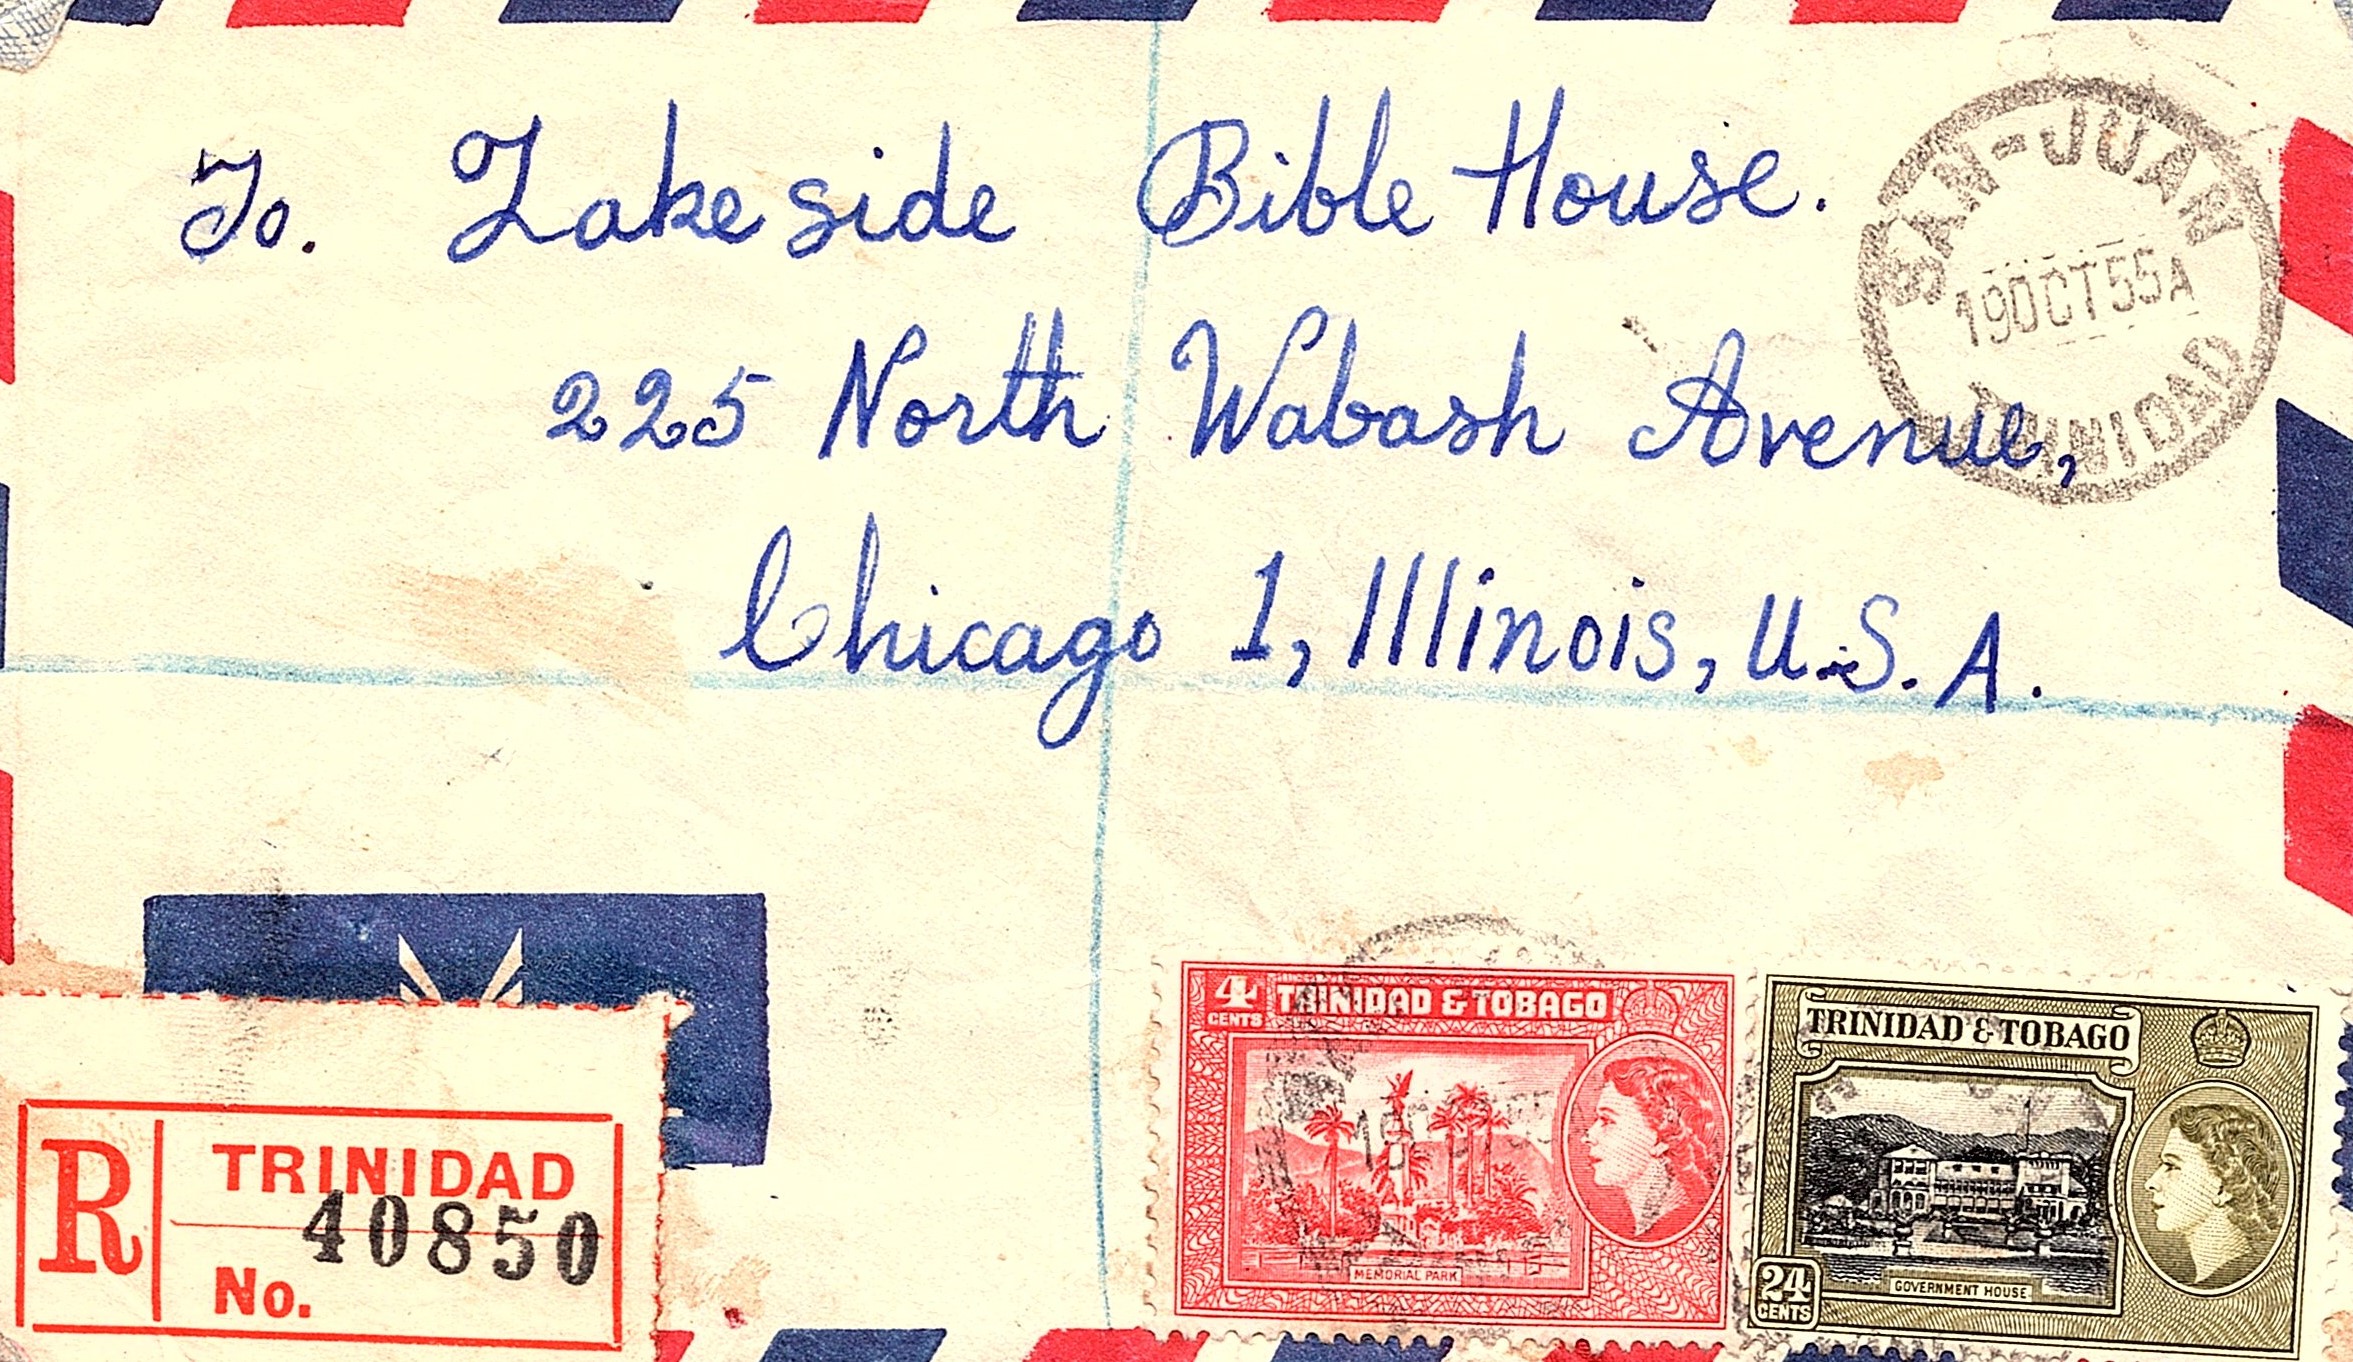 To. Lakeside Bible House.
225 North Wabash Avenue,
Chicago 1, Illinois, U.S.A.
SAN-JUAN
19 OCT 55 A
TRINIDAD
R
TRINIDAD
40850
No.
4 CENTS
TRINIDAD & TOBAGO
MEMORIAL PARK
TRINIDAD & TOBAGO
24 CENTS
GOVERNMENT HOUSE